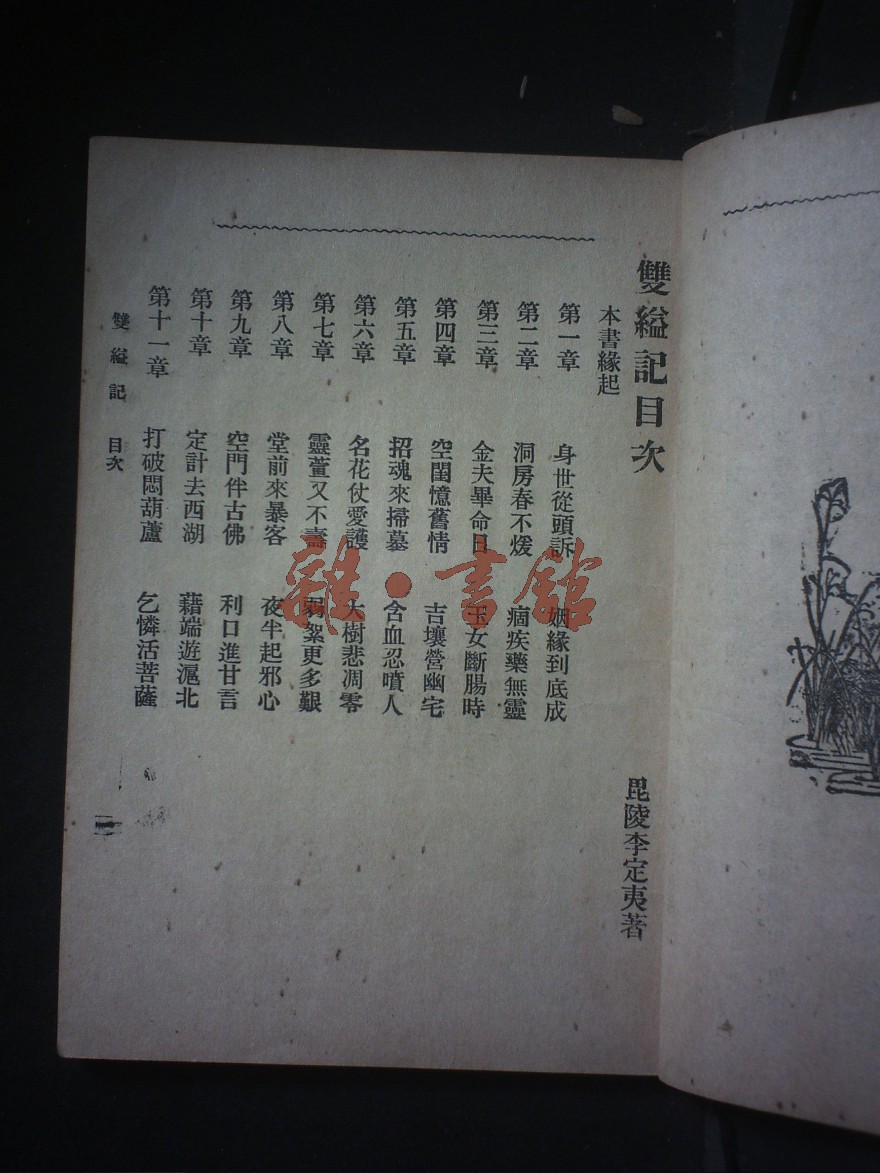 雙縊記目次
毘陵李定夷著
本書緣起
第一章 身世從頭訴 姻緣到底成
第二章 洞房春不煖 痼疾藥無靈
第三章 金夫畢命日 玉女斷腸時
第四章 空閨憶舊情 吉壤營幽宅
第五章 招魂來掃墓 含血忍噴人
第六章 名花仗愛護 大樹悲凋零
第七章 靈萱又不壽 弱絮更多艱
第八章 堂前來暴客 夜半起邪心
第九章 空門伴古佛 利口進甘言
第十章 定計去西湖 藉端遊滬北
第十一章 打破悶葫蘆 乞憐活菩薩
雙縊記 目次
雜·書館